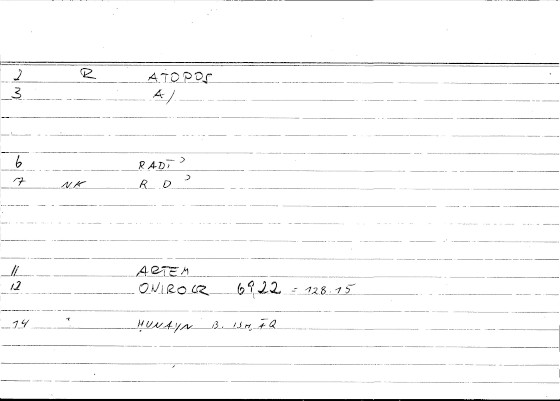 2 R ATOPOS
3 A/
6 RADĪʾ
7 NK R D ʾ
11 ARTEM
12 ONIROCR 69,22 = 128.15
14 " ḤUNAYN B. ISḤĀQ